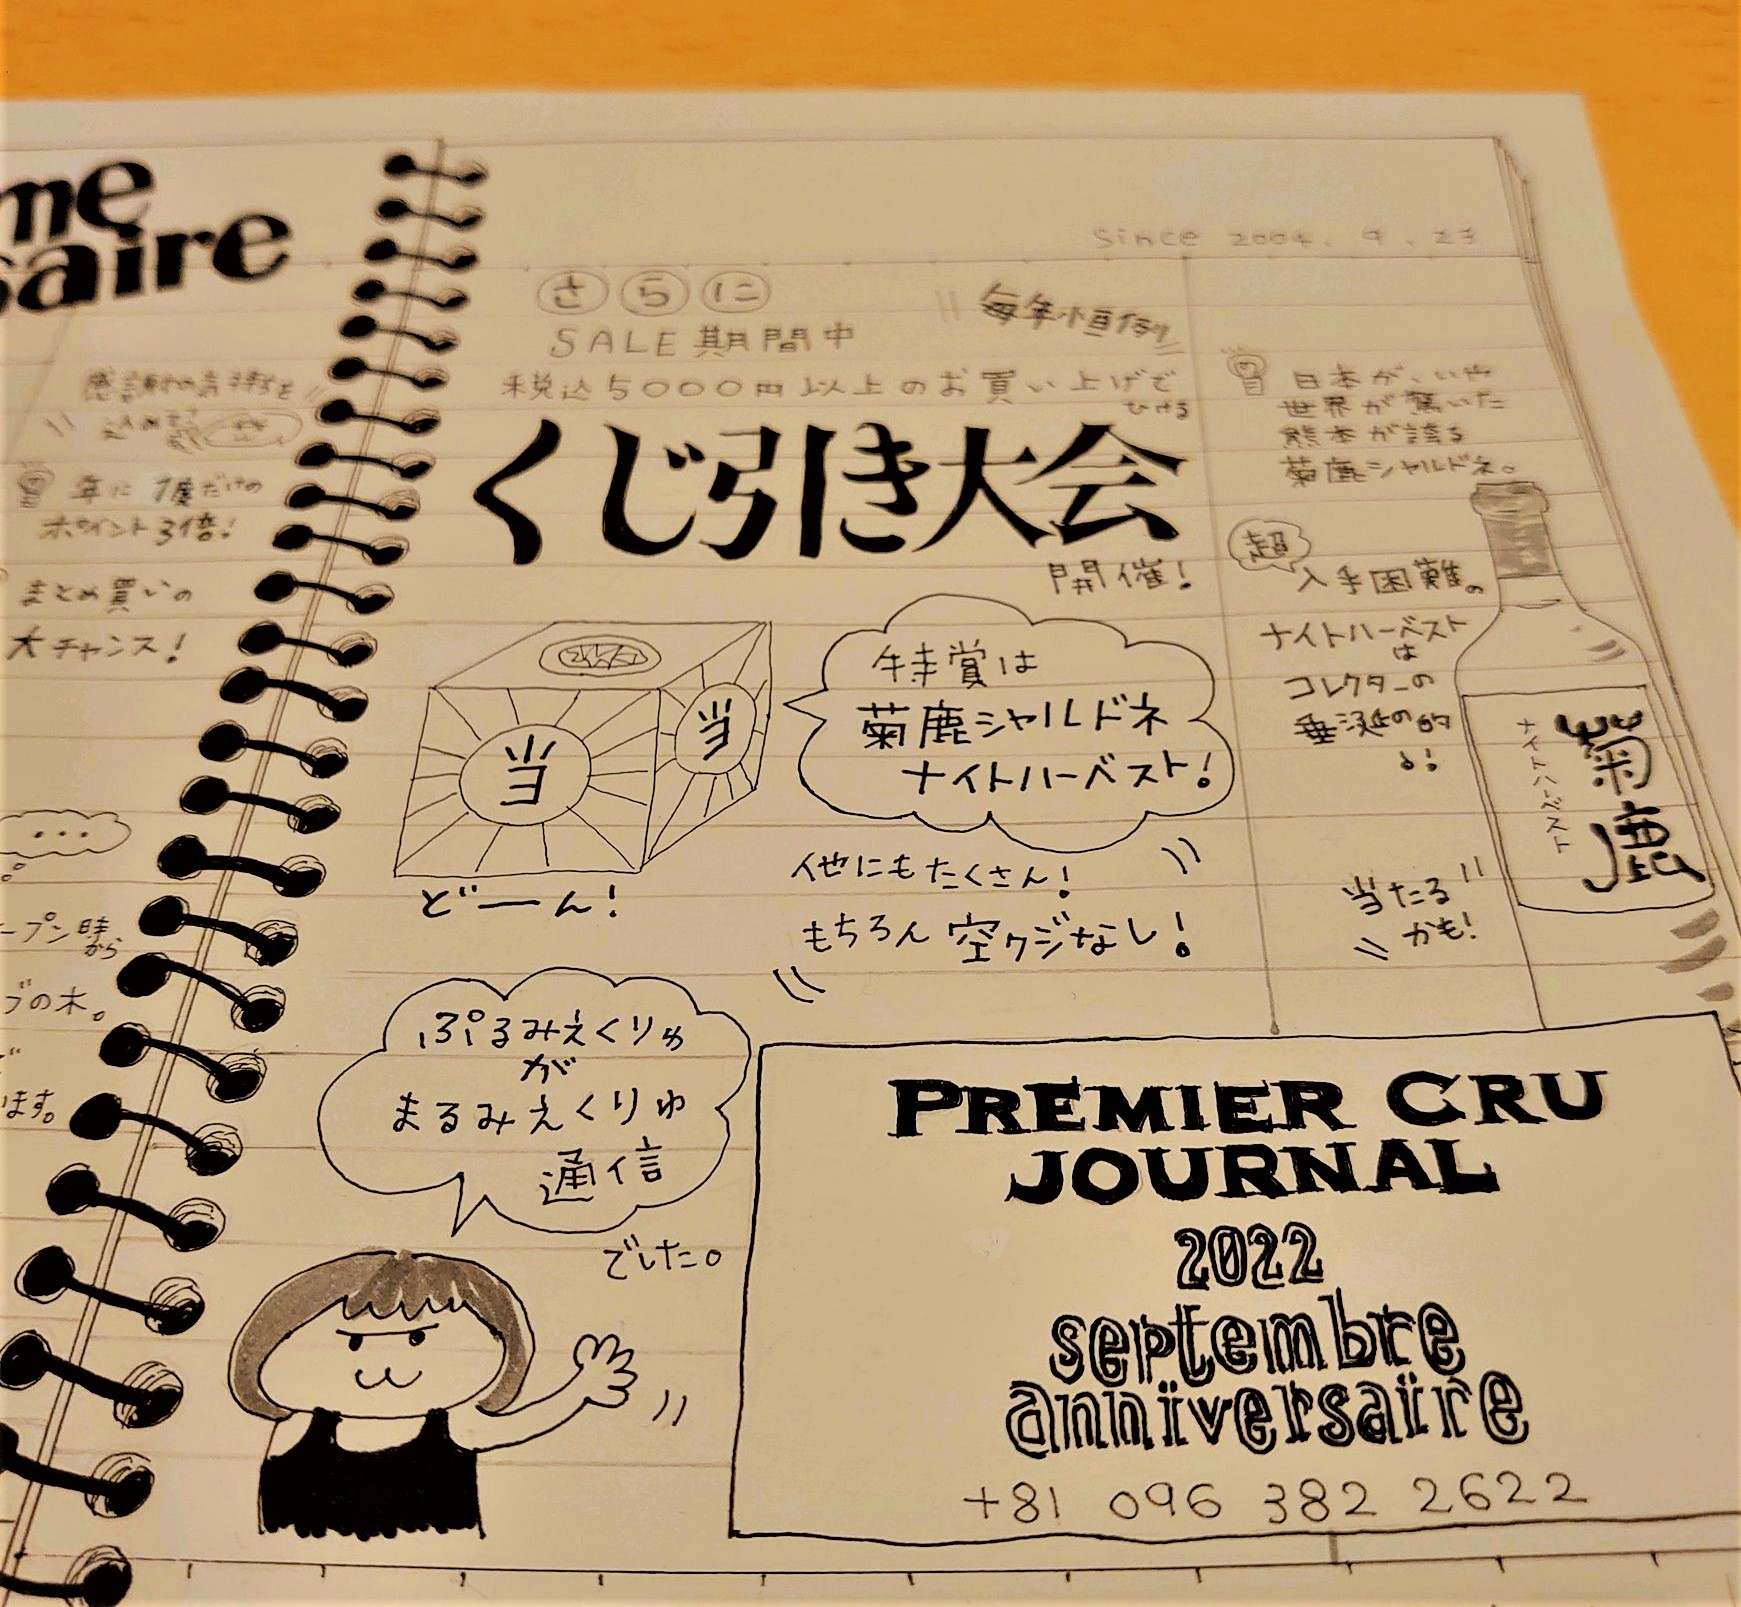 me
saire
感謝の気持ちを
年に1度だけの
ポイント3倍!
まとめ買いの
大チャンス!
...
ープン時から
ブの木。
ます。
since 2004.9.23
さらに
SALE期間中
毎年恒例
税込5000円以上のお買い上げで
ひける
くじ引き大会
開催!
当
当
どーん!
特賞は
菊鹿シャルドネ
ナイトハーベスト!
他にもたくさん!
もちろん空クジなし!
日本が、いや
世界が驚いた
熊本が誇る
菊鹿シャルドネ。
超
入手困難の
ナイトハーベスト
は
コレクターの
垂涎の的
!
菊鹿
ナイトハーベスト
当たる
かも!
ぷるみえくりゅ
が
まるみえくりゅ
通信
でした。
PREMIER CRU
JOURNAL
2022
septembre
anniversaire
+81 096 382 2622